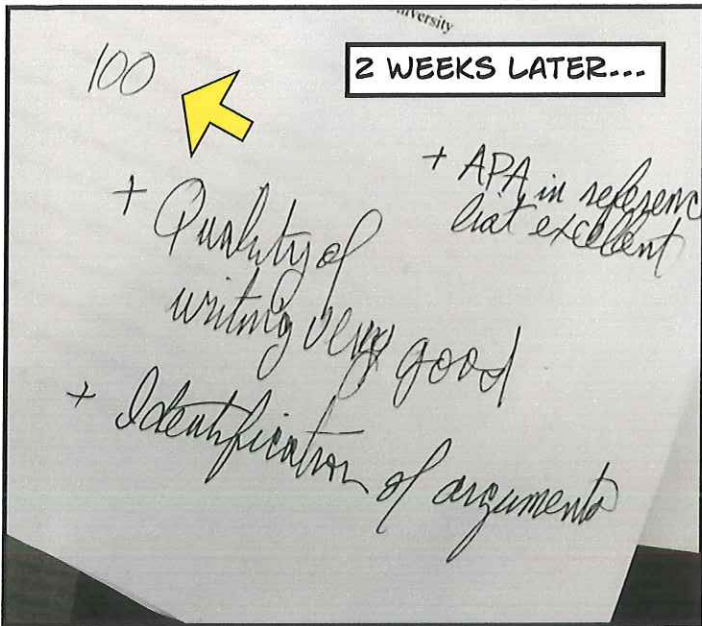 niversity
100
2 WEEKS LATER...
+ APA in referenc
list excellent
+ Quality of
writing very good
+ Identification of arguments